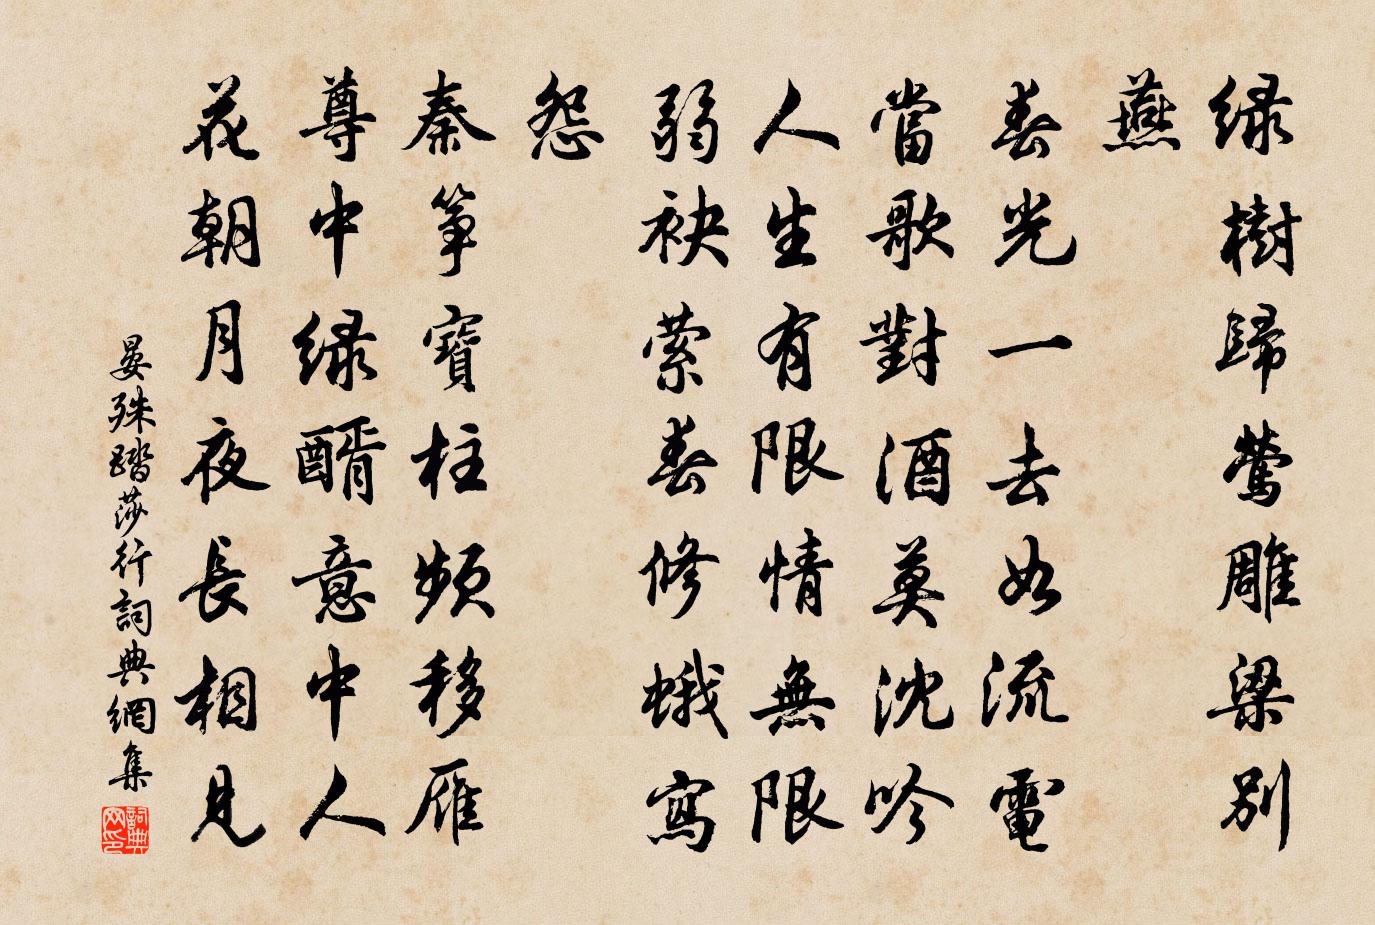 绿樹歸鶯雕梁別
燕
春光一去如流電
當歌對酒莫沈吟
人生有限情無限
弱袂萦春修蛾寫
怨
秦筝寶柱頻移雁
尊中绿醑意中人
花朝月夜長相見
晏殊踏莎行詞典網集
詞典网印